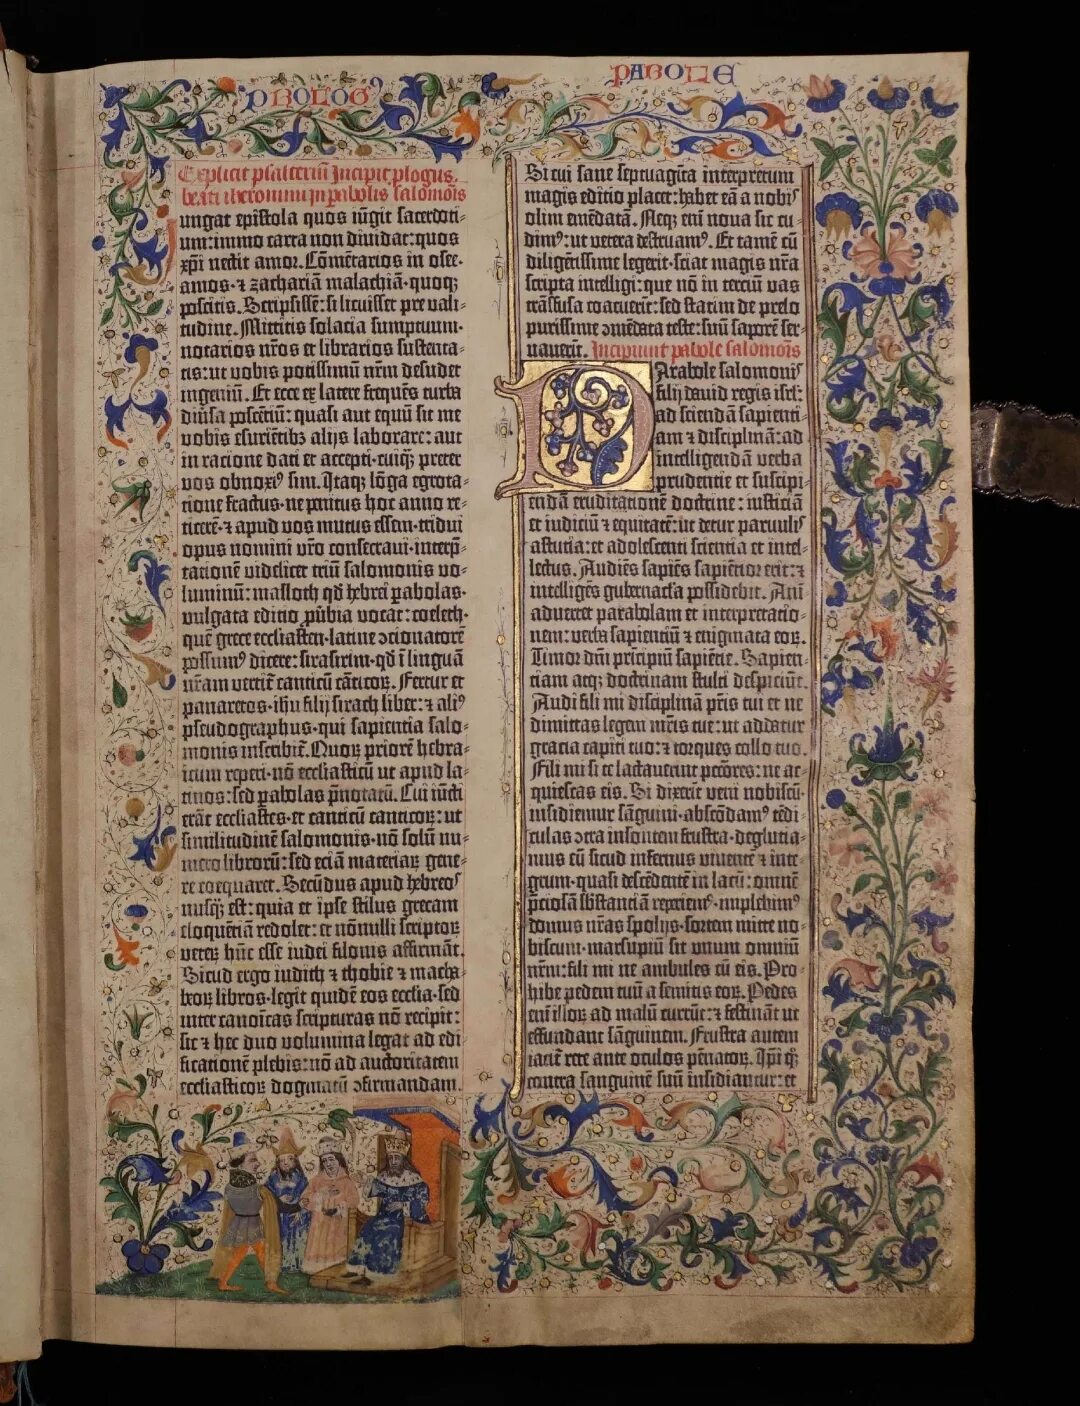 PROLOGꝰ
PABOLE
Explicit psalteriū Incipit plogus.
beati iheronimi in pabolis salomōis
ungat epistola quos iūgit sacerdoti-
um: immo carta non diuidat: quos
xp̄i nectit amor. Cōmētarios in osee.
amos. ⁊ zachariā malachiā. quoqꝫ
poscitis. Scripsissē: si licuisset pre vali-
tudine. Mittitis solacia sumptuum.
notarios nr̄os et librarios sustenta-
tis: ut vobis potissimū nr̄m desudet
ingeniū. Et ecce ex latere frequēs turba
diūsa poscētiū: quasi aut equū sit me
vobis esuriētibꝫ alijs laborare: aut
in racione dati et accepti. cuiqꝫ preter
vos obnoxiꝰ sim. Itaqꝫ lōga egrota-
tione fractus. ne penitus hoc anno re-
ticerē. ⁊ apud vos mutus essem. tridui
opus nomini vr̄o consecraui. interp̄-
tationē videlicet triū salomonis vo-
luminū: masloth qd̄ hebrei pabolas.
vulgata editio ꝓūbia vocat: coeleth.
quē grece ecclesiasten. latine ꝯcionatorē
possumꝰ dicere: sirasirim. qd̄ ī linguā
nr̄am vertit̄ canticū cāticoꝝ. Fertur et
panaretos. ihu filij sirach liber: ⁊ aliꝰ
pseudographus. qui sapientia salo-
monis inscribit̄. Quoꝝ priorē hebra-
icum reperi. nō ecclesiasticū ut apud la-
tinos: sed pabolas p̄notatū. Cui iūcti
erāt ecclesiastes. et canticū canticoꝝ: ut
similitudinē salomonis. nō solū nu-
mero librorū: sed eciā materiaꝝ gene-
re coequaret. Secūdus apud hebreoˢ
nusqꝫ est: quia et ipse stilus grecam
eloquētiā redolet: et nōnulli scriptoꝝ
veteꝝ hūc esse iudei filonis affirmāt.
Sicud ergo iudith ⁊ thobie ⁊ macha-
beoꝝ libros. legit quidē eos ecclia. sed
inter canoīcas scripturas nō recipit:
sic ⁊ hec duo volumina legat ad edi-
ficationē plebis: nō ad auctoritatem
ecclesiasticoꝝ dogmatū ꝯfirmandam.
Si cui sane septuagīta interpretum
magis editio placet: habet eā a nobiˢ
olim emēdatā. Neqꝫ em̄ noua sic cu-
dimꝰ: ut vetera destruamꝰ. Et tamē cū
diligētissime legerit. sciat magis nr̄a
scripta intelligi: que nō in terciū vas
trāsfusa coacuerit: sed statim de prelo
purissime ꝯmēdata teste: suū saporē ser-
uauerīt. Incipiunt pabole salomōis
Parabole salomonis
filij dauid regis isrl:
ad sciendā sapienti-
am ⁊ disciplinā: ad
intelligendā verba
prudentie et suscipi-
endā eruditationē doctrine: iusticiā
et iudiciū ⁊ equitatē: ut detur paruuliˢ
astutia: et adolescenti scientia et intel-
lectus. Audiēs sapiēs sapiētior erit: ⁊
intelligēs gubernacla possidebit. Ani-
aduertet parabolam et interpretatio-
nem: verba sapientiū ⁊ enigmata eoꝝ.
Timor dn̄i prīcipiū sapiētie. Sapien-
ciam atqꝫ doctrinam stulti despiciūt.
Audi fili mi disciplinā pr̄is tui et ne
dimittas legem mr̄is tue: ut addatur
gracia capiti tuo: ⁊ torques collo tuo.
Fili mi si te lactauerint pctōres: ne ac-
quiescas eis. Si dixerit veni nobiscū.
insidiemur sāguini. abscōdamꝰ tēdi-
culas ꝯtra insontem frustra. deglutia-
mus eū sicud infernus viuentē ⁊ inte-
grum. quasi descēdentē in lacū: omnē
p̄ciosā sb̄stanciā reperiemꝰ. implebimꝰ
domus nr̄as spolijs. sortem mitte no-
biscum. marsupiū sit vnum omniū
nr̄m: fili mi ne ambules cū eis. Pro-
hibe pedem tuū a semitis eoꝝ. Pedes
em̄ illoꝝ ad malū currūt: ⁊ festināt ut
effundant sāguinem. Frustra autem
iacit̄ rete ante oculos pēnatoꝝ. Ip̄i qꝫ
contra sanguinē suū insidiantur: et